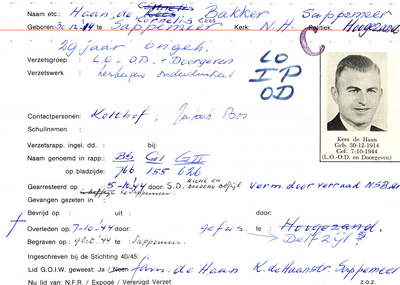 Naam etc.: Haan, de Cornelis Cees Bakker Sappemeer
Geboren: 30-12-14 te Sappemeer Kerk: N.H. Politiek. Hoogezand
29 jaar ongeh.
Verzetsgroep L.O. - O.D. + Doorgeven
LO
IP
OD
Verzetswerk : onderduikers
Contactpersonen: Kolthof, Jakob Bos
Schuilnemen :
Kees de Haan
Geb. 30-12-1914
Gef. 7-10-1944
(L.O.-O.D. en Doorgeven)
Verzetsrapp. ingel. dd. : bij:
Naam genoemd in rapp.: GI GII
op bladzijde: 766 155 626
Gearresteerd op 5-10-'44 door: S.D. verm. door verraad NSB
te Sappemeer
Gevangen gezeten in :
Bevrijd op : uit : door:
Overleden op : 7-10-'44 door: te : Hoogezand.
Delfzijl ?
Begraven op : 9 oct. '44 te : Sappemeer
Ingeschreven bij de Stichting 40/45:
Lid G.O.I.W. geweest: Ja / Neen fam. de Haan K. de Haanstr. Sappemeer
Nu lid van: N.F.R. / Expogé / Verenigd Verzet z.o.z.